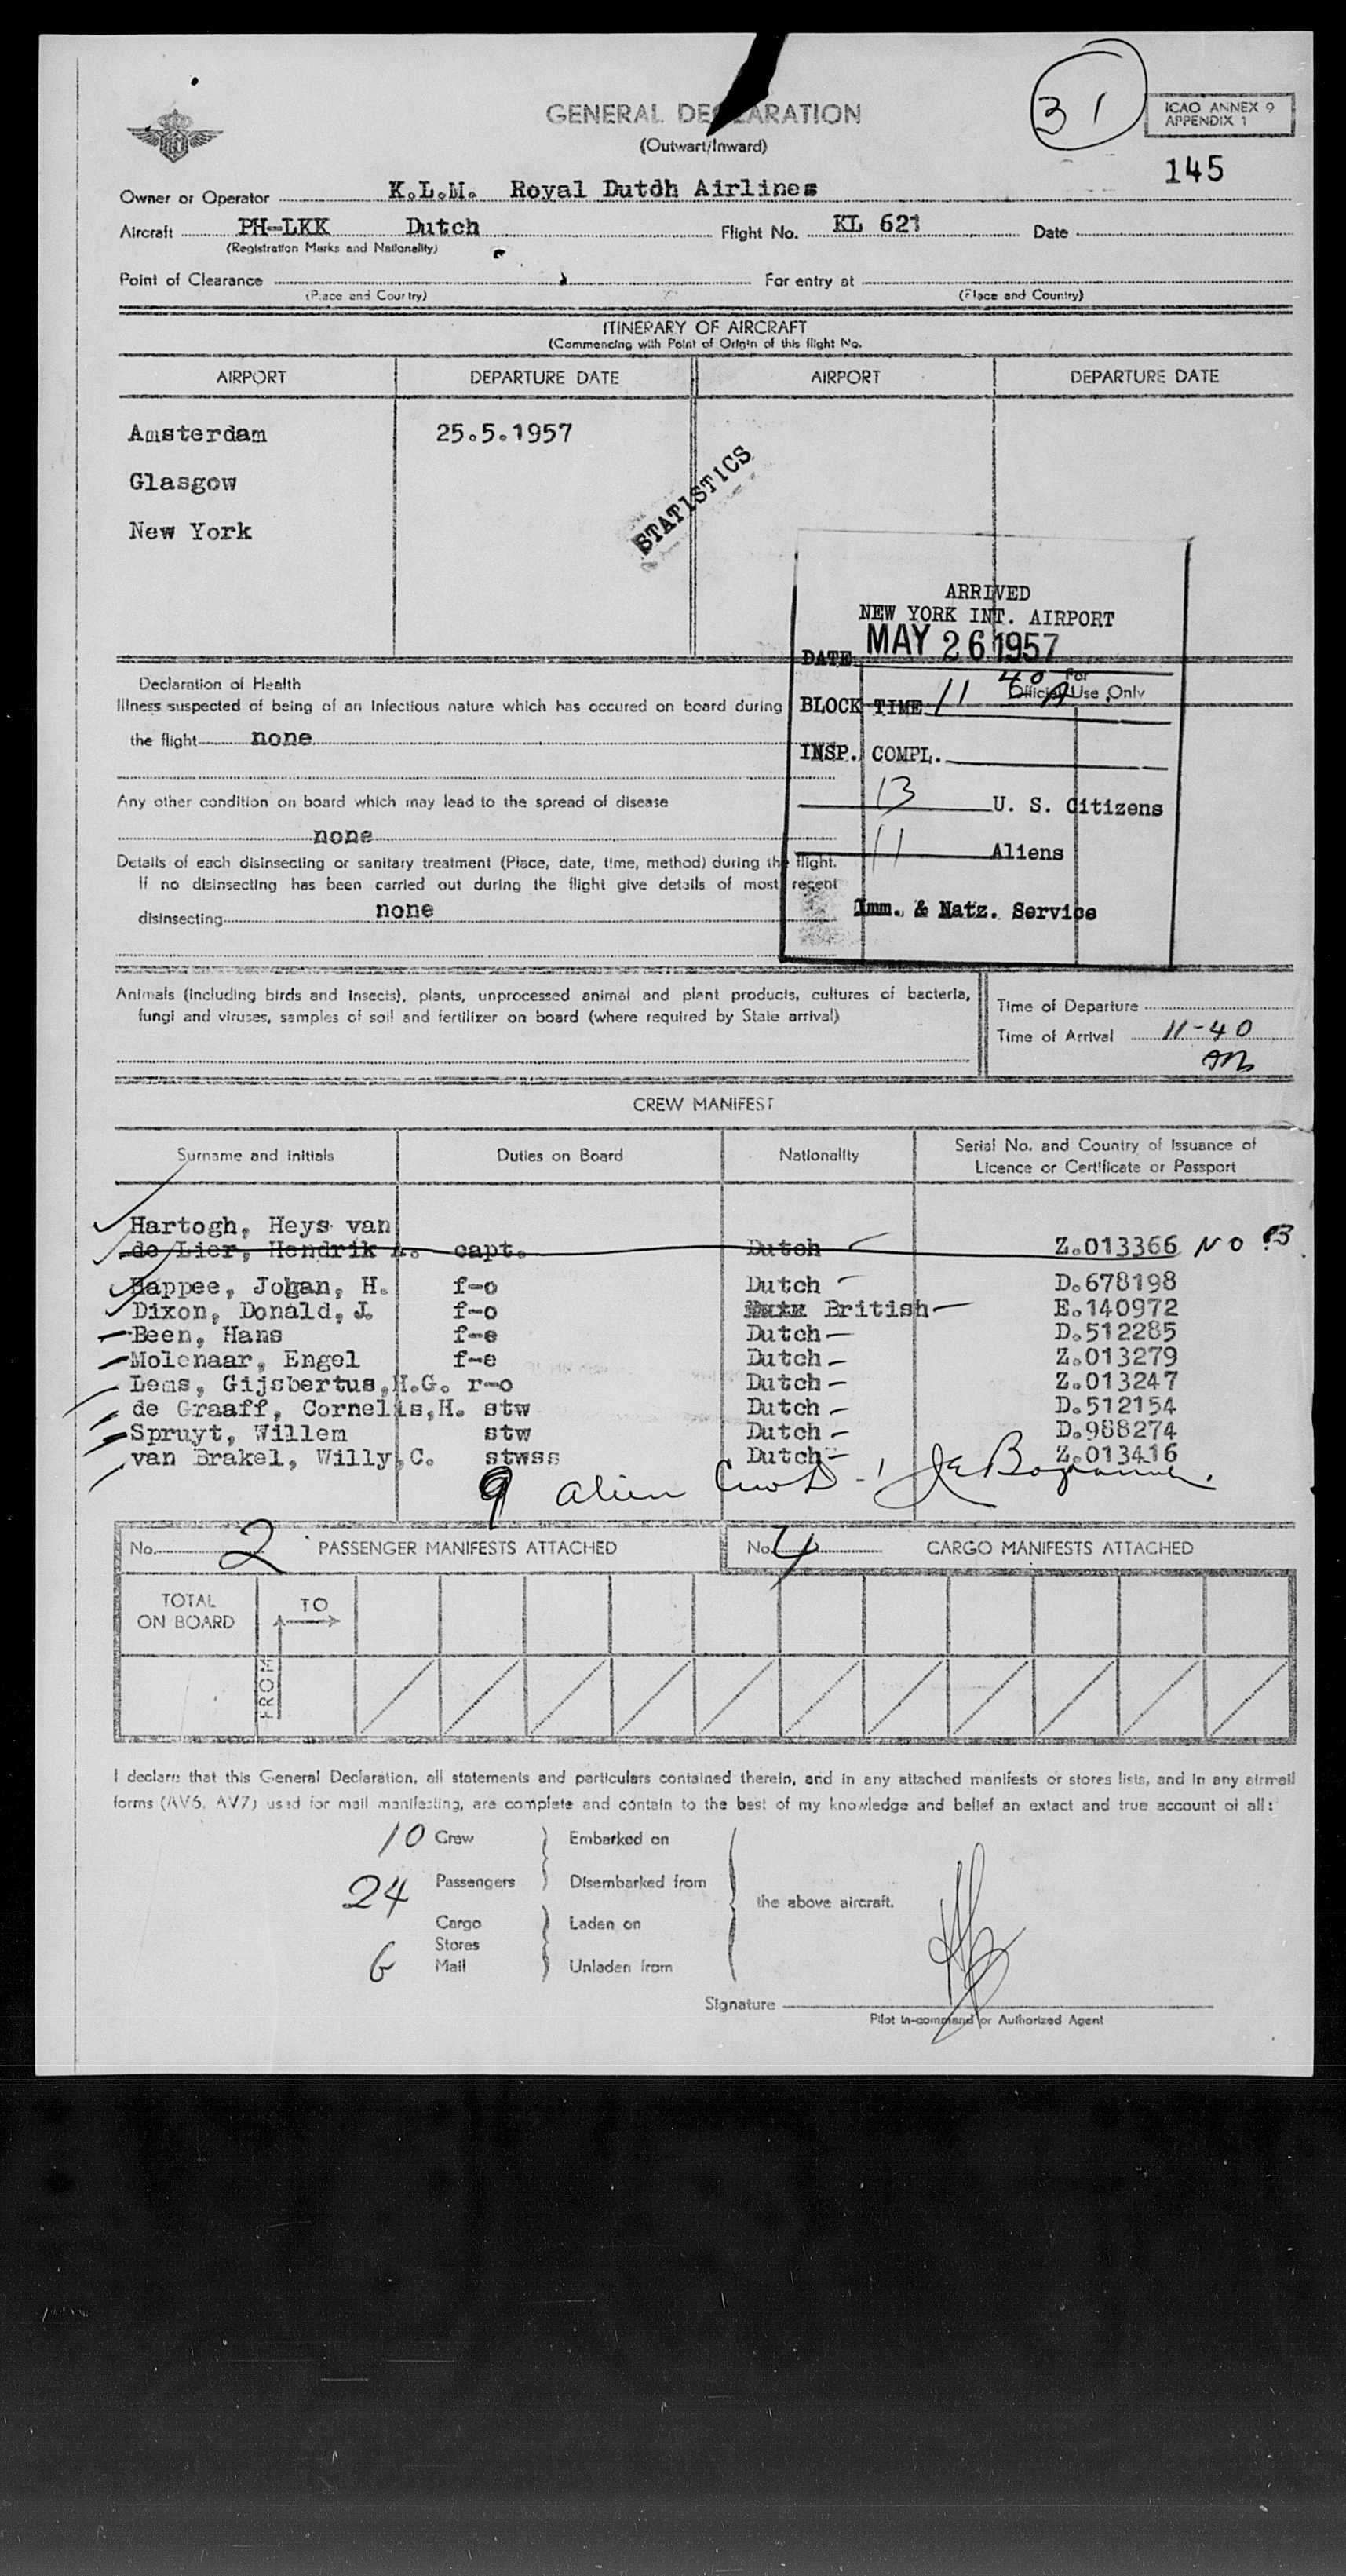 GENERAL DECLARATION
(Outwart/Inward)
31
ICAO ANNEX 9
APPENDIX 1
145
Owner or Operator K.L.M. Royal Dutch Airlines
Aircraft PH-LKK Dutch Flight No. KL 621 Date
(Registration Marks and Nationality)
Point of Clearance For entry at
(Place and Country) (Place and Country)
ITINERARY OF AIRCRAFT
(Commencing with Point of Origin of this flight No.
AIRPORT DEPARTURE DATE AIRPORT DEPARTURE DATE
Amsterdam 25.5.1957
Glasgow
New York
STATISTICS
ARRIVED
NEW YORK INT. AIRPORT
DATE MAY 26 1957
For
Official Use Only
BLOCK TIME 11 40 A
INSP. COMPL.
13 U. S. Citizens
11 Aliens
Imm. & Natz. Service
Declaration of Health
Illness suspected of being of an Infectious nature which has occured on board during
the flight none
Any other condition on board which may lead to the spread of disease
none
Details of each disinsecting or sanitary treatment (Place, date, time, method) during the flight.
If no disinsecting has been carried out during the flight give details of most recent
disinsecting none
Animals (including birds and insects), plants, unprocessed animal and plant products, cultures of bacteria,
fungi and viruses, samples of soil and fertilizer on board (where required by State arrival)
Time of Departure
Time of Arrival 11-40
AM
CREW MANIFEST
Surname and initials Duties on Board Nationality Serial No. and Country of Issuance of
Licence or Certificate or Passport
Hartogh, Heys van
de Lier, Hendrik A. capt. Dutch Z.013366 NO
Happee, Johan, H. f-o Dutch D.678198
Dixon, Donald, J. f-o British E.140972
Been, Hans f-e Dutch D.512285
Molenaar, Engel f-e Dutch Z.013279
Lems, Gijsbertus, H.G. r-o Dutch Z.013247
de Graaff, Cornelis, H. stw Dutch D.512154
Spruyt, Willem stw Dutch D.988274
van Brakel, Willy, C. stwss Dutch Z.013416
9 alien
No. 2 PASSENGER MANIFESTS ATTACHED No. 4 CARGO MANIFESTS ATTACHED
TOTAL
ON BOARD
TO
FROM
I declare that this General Declaration, all statements and particulars contained therein, and in any attached manifests or stores lists, and in any airmail
forms (AV6, AV7) used for mail manifesting, are complete and contain to the best of my knowledge and belief an extact and true account of all:
10 Crew Embarked on
24 Passengers Disembarked from
the above aircraft.
Cargo Laden on
Stores
Mail Unladen from
Signature
Pilot in-command or Authorized Agent